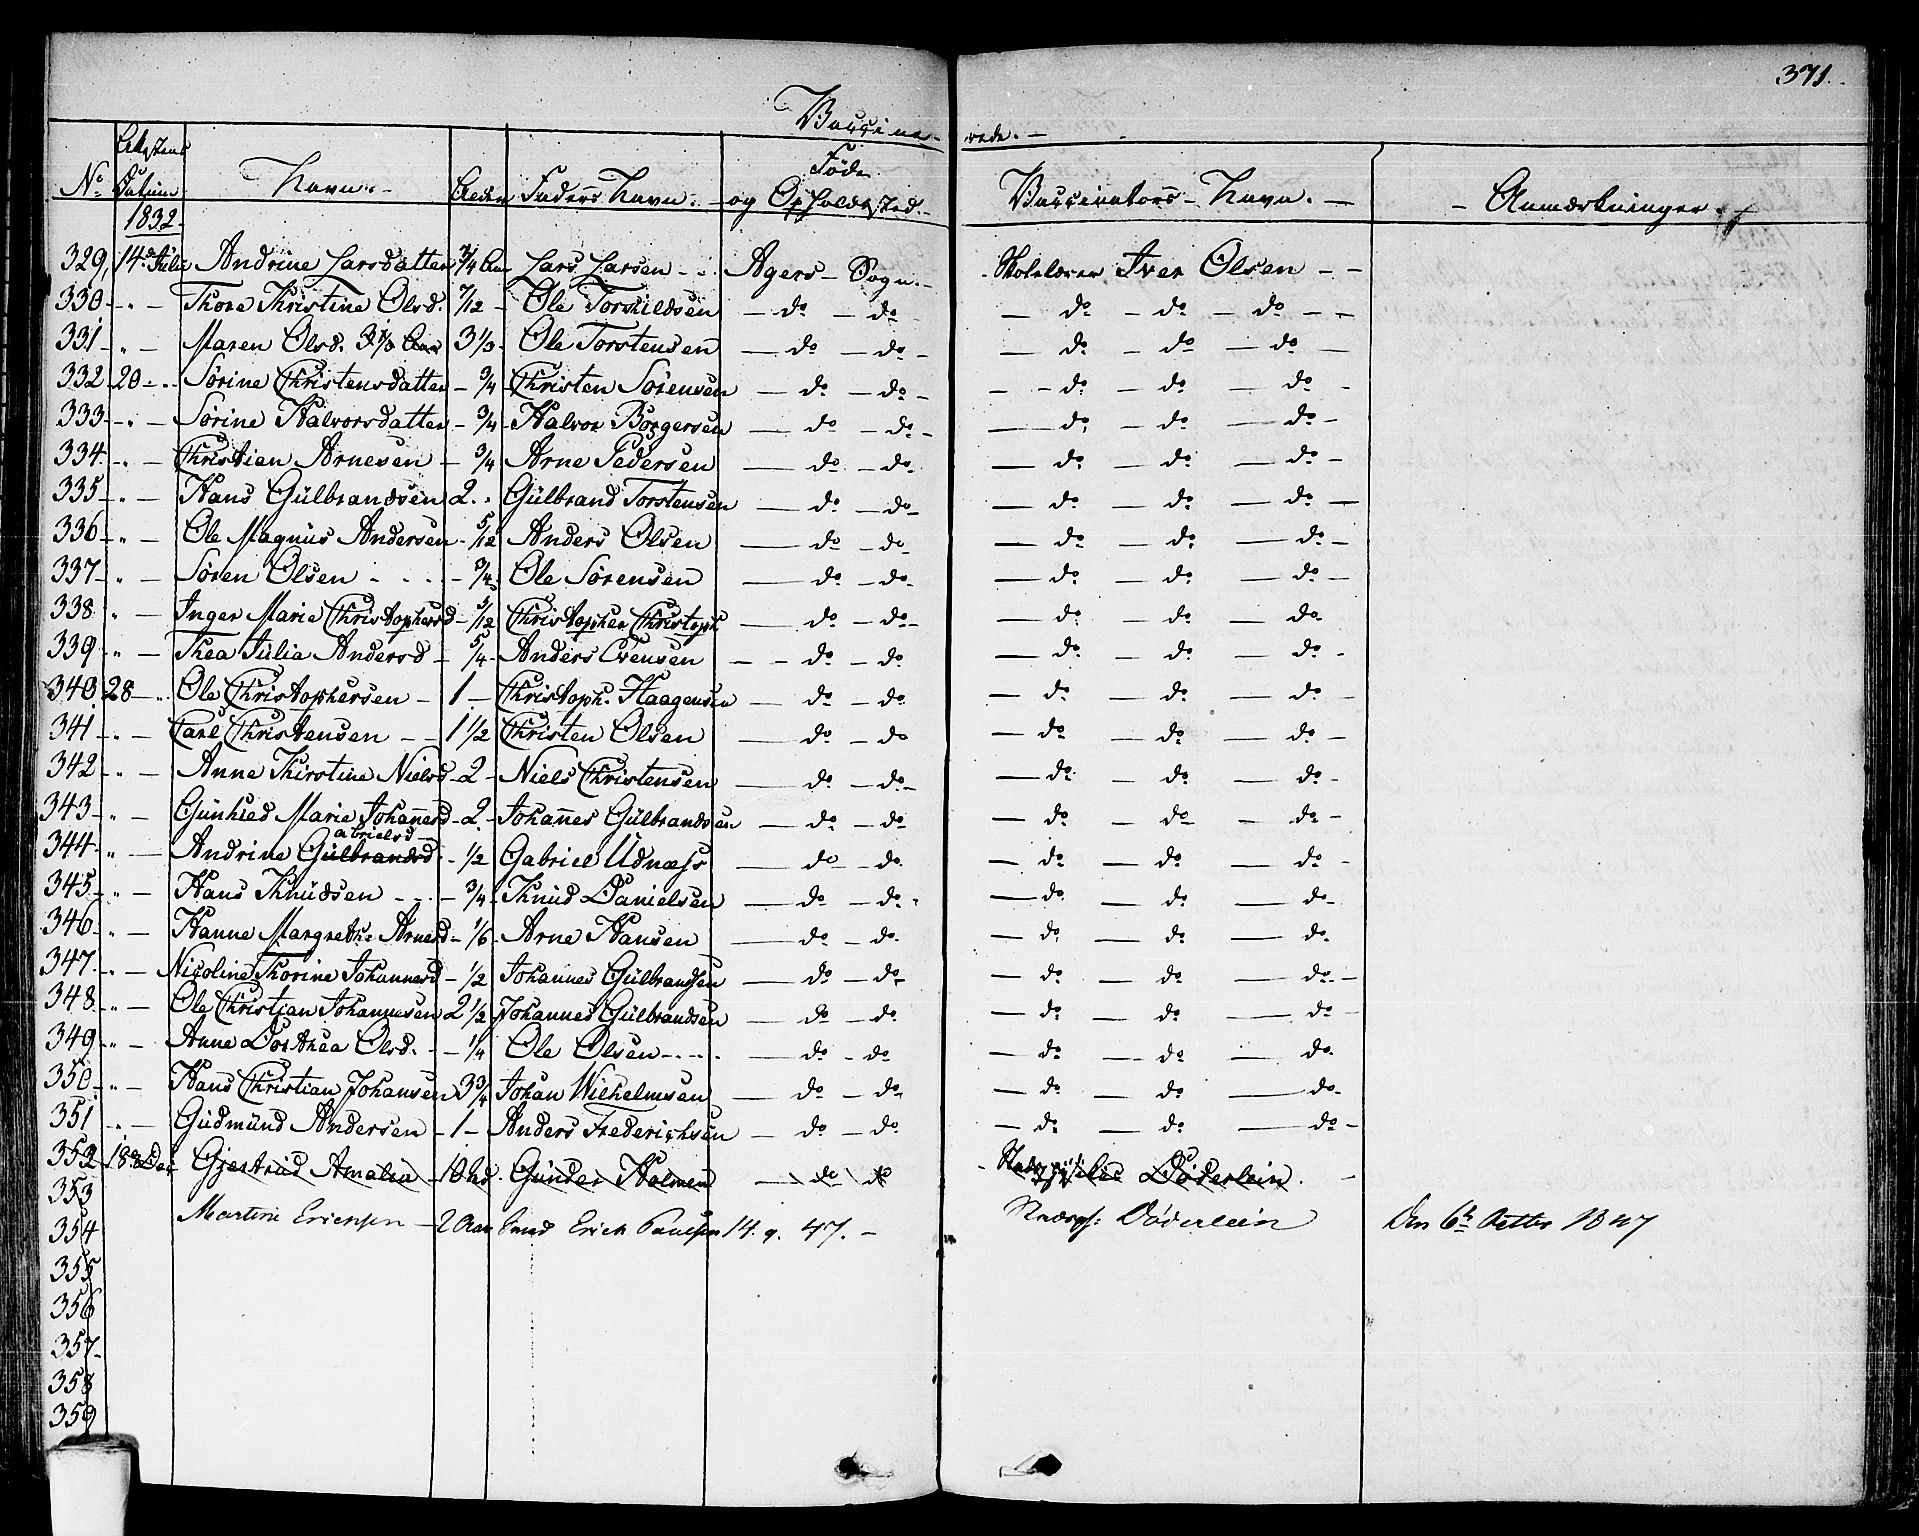 371.
Vaccine- rede. -
No Attestens Datum Navn. Alder Faders Navn. Føde og Opholdssted. Vaccinateurs Navn. Anmærkninger.
1832
329, 14de Julii Andrine Larsdatter 3/4 Aar Lars Larsen Agers Sogn. Skolelærer Iver Olsen
330 - " - Thore Kristine Olsd. 7/12 Ole Torkildsen - do - do - do - do - do
331 - " - Maren Olsd. 3 1/3 Aar 3 1/3 Ole Torstensen - do - do - do - do - do
332 20 - " Sørine Christensdatter 3/4 Christen Sørensen - do - do - do - do - do
333 - " - Sørine Halvorsdatter 3/4 Halvor Børgersen - do - do - do - do - do
334 - " - Christian Arnesen 3/4 Arne Pedersen - do - do - do - do - do
335 - " - Hans Gülbrandsen 2 Gülbrand Torstensen - do - do - do - do - do
336 - " - Ole Magnus Andersen 5/12 Anders Olsen - do - do - do - do - do
337 - " - Søren Olsen 3/4 Ole Sørensen - do - do - do - do - do
338 " - Inger Marie Christophersd 5/12 Christopher Christoph - do - do - do - do - do
339 - " - Thea Julia Andersd 5/4 Anders Evensen - do - do - do - do - do
340 28 - " Ole Christophersen 1 Christoph. Haagensen - do - do - do - do - do
341 - " - Carl Christensen 1 1/2 Christen Olsen - do - do - do - do - do
342 - " - Anne Kirstine Nielsd 2 Niels Christensen - do - do - do - do - do
343 - " - Gunhild Marie Johannesd 2 Johannes Gülbrandsen - do - do - do - do - do
abrielsd
344 - " - Andrine Gülbrandsd 1/2 Gabriel Udnæss - do - do - do - do - do
345 - " - Hans Knudsen 3/4 Knud Danielsen - do - do - do - do - do
346 - " - Hanne Margreth. Arnesd 1/6 Arne Hansen - do - do - do - do - do
347 - " - Nicoline Thorine Johannesd 1/2 Johannes Gülbrandsen - do - do - do - do - do
348 " - Ole Christian Johannesen 2 1/2 Johannes Gülbrandsen - do - do - do - do - do
349 " - Anne Dorthea Olsd. 1/4 Ole Olsen - do - do - do - do - do
350 - " - Hans Christian Johansen 3 3/4 Johan Wilhelmsen - do - do - do - do - do
351 - " - Gudmünd Andersen 1 Anders Frederichsen - do - do - do - do - do
352 18de Dec Gjertrud Amalia 10 Gunder Holmen - do - do Døderlein.
353
354 Martin Ericksen 2 Aar Erick Paulsen 14. 9. 47. Døderlein Den 6te Octbr 1847
355
356
357
358
359